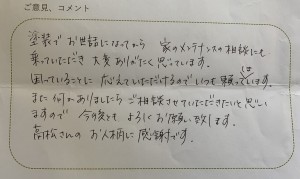 ご意見、コメント
塗装でお世話になってから 家のメンテナンスの相談にも
乗っていただき 大変ありがたく思っています。
困っていることに 応えていただけるのでいつも頼っています。
また何かありましたらご相談させていただきたいと思い
ますので 今後とも よろしくお願い致します。
高松さんの お人柄に感謝です。